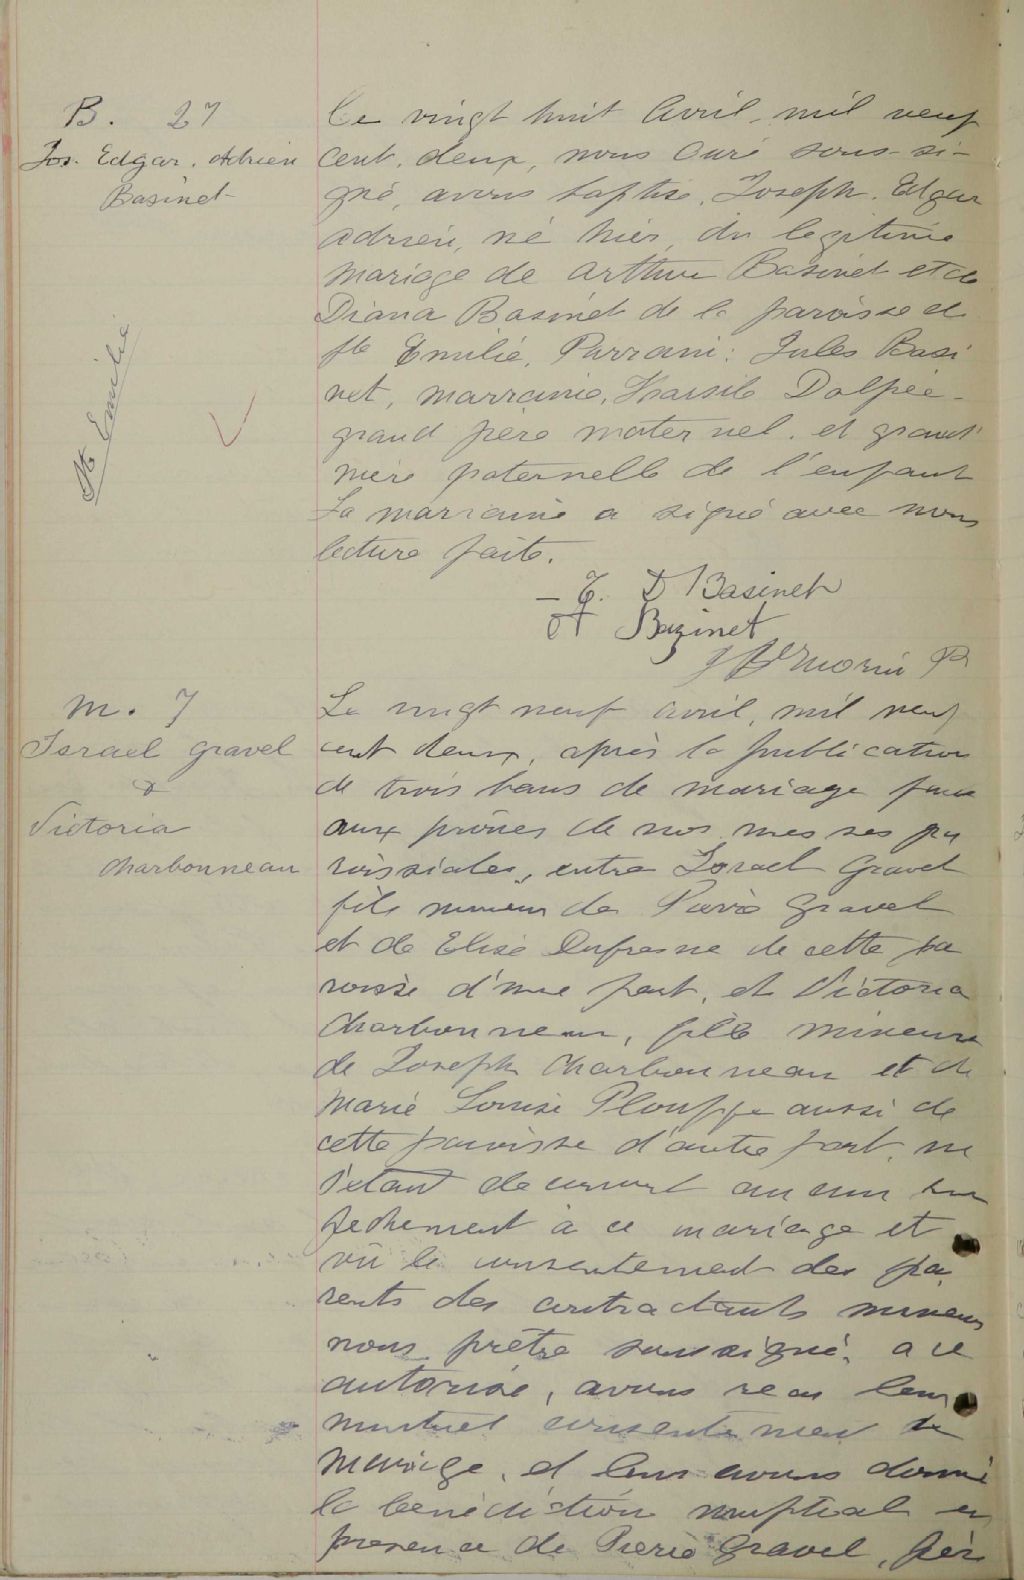 B. 27
Jos. Edgar. Adrien
Basinet
Ste Emilie
Ce vingt huit Avril, mil neuf
cent, deux, nous Curé sous-si-
gné, avons baptisé, Joseph. Edgar
Adrien, né hier, du légitime
mariage de Arthur Basinet et de
Diana Basinet de la paroisse de
Ste Emilie, Parrain: Jules Basi
net, marraine, Dalpée-
grand père maternel. et grand'
mère paternelle de l'enfant
La marraine a signé avec nous
lecture faite.
D Basinet
Bazinet
Morin P
M. 7
Israel Gravel
&
Victoria
Charbonneau
Le vingt neuf avril, mil neuf
cent deux, après la publication
de trois bans de mariage faite
aux prônes de nos messes pa
roissiales, entre Israel Gravel
fils mineur de Pierre Gravel
et de Elise Dufresne de cette pa
roisse d'une part, et Victoria
Charbonneau, fille mineure
de Joseph Charbonneau et de
Marie Louise Plouffe aussi de
cette paroisse d'autre part, ne
s'étant découvert aucun em
pechement à ce mariage et
vû le consentement des pa
rents des contractants mineurs
nous prêtre soussigné, a ce
autorisé, avons reçu leur
mutuel consentement de
mariage, et leur avons donné
la bénédiction nuptial en
presence de Pierre Gravel, père